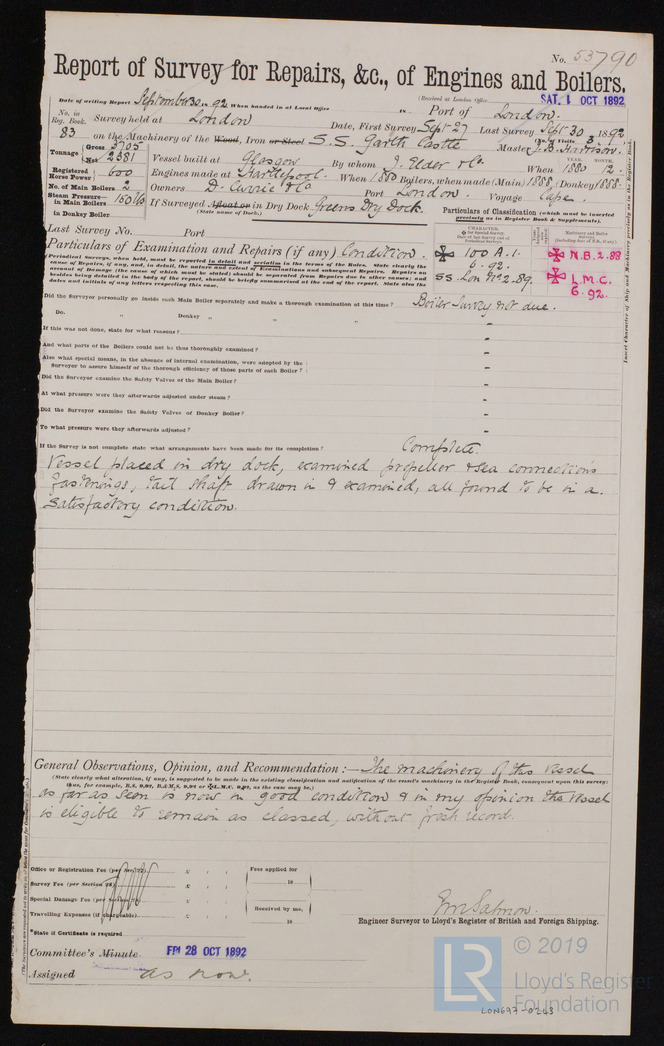 No. 53790
Report of Survey for Repairs, &c., of Engines and Boilers.
(Received at London Office SAT. 1 OCT 1892
Date of writing Report September 30 1892 When handed in at Local Office 18 Port of London.
No. in Reg. Book 83 Survey held at London Date, First Survey Sept 27 Last Survey Sept 30 1892
(No. of Visits 3)
on the Machinery of the Wood, Iron or Steel S.S. Garth Castle Master J. B. Harrison.
Tonnage Gross 3705 Net 2381
Vessel built at Glasgow By whom J. Elder & Co. When 1880 YEAR. MONTH. 12.
Registered Horse Power 600
Engines made at Hartlepool. When 1880 Boilers, when made (Main) 1888 (Donkey) 1888.
No. of Main Boilers 2
Owners D. Currie & Co Port London. Voyage Cape.
Steam Pressure in Main Boilers 150 lb
in Donkey Boiler
If Surveyed Afloat or in Dry Dock Greens Dry Dock.
(State name of Dock.)
Particulars of Classification (which must be inserted precisely as in Register Book & Supplements).
Last Survey No. Port
CHARACTER.
Machinery and Boiler Surveys (including date of N.B., if any).
100 A.1.
6.92.
SS. Lon No2-89.
N.B. 2.88
L.M.C.
6.92.
Particulars of Examination and Repairs (if any) Condition.
(Periodical Surveys, when held, must be reported in detail and seriatim in the terms of the Rules. State clearly the
cause of Repairs, if any, and, in detail, the nature and extent of Examinations and subsequent Repairs. Repairs on
account of Damage (the cause of which must be stated) should be separated from Repairs due to other causes; and
besides being detailed in the body of the report, should be briefly summarised at the end of the report. State also the
dates and initials of any letters respecting this case.
Did the Surveyor personally go inside each Main Boiler separately and make a thorough examination at this time? Boiler Survey not due.
Do. „ Donkey „ „ „ „ -
If this was not done, state for what reasons? -
And what parts of the Boilers could not be thus thoroughly examined? -
Also what special means, in the absence of internal examination, were adopted by the
Surveyor to assure himself of the thorough efficiency of those parts of each Boiler? -
Did the Surveyor examine the Safety Valves of the Main Boiler? -
At what pressure were they afterwards adjusted under steam? -
Did the Surveyor examine the Safety Valves of Donkey Boiler? -
To what pressure were they afterwards adjusted? -
If the Survey is not complete state what arrangements have been made for its completion? Complete.
Vessel placed in dry dock, examined propeller & sea connections
fastenings, tail shaft drawn in & examined, all found to be in a
satisfactory condition.
General Observations, Opinion, and Recommendation:— The machinery of this vessel
(State clearly what alteration, if any, is suggested to be made in the existing classification and notification of the vessel's machinery in the Register Book, consequent upon this survey:
thus, for example, B.S. 9,92, B.&M.S. 9,92 or L.M.C. 9,92, as the case may be.)
as far as seen is now in good condition & in my opinion the vessel
is eligible to remain as classed, without fresh record.
Office or Registration Fee
Survey Fee (per Section 28)
Special Damage Fee
Travelling Expenses (if chargeable)
Fees applied for
18
Received by me,
18
*State if Certificate is required
Engineer Surveyor to Lloyd's Register of British and Foreign Shipping.
Committee's Minute FRI 28 OCT 1892
Assigned as now.
LR
© 2019
Lloyd's Register
Foundation
LON697-0263